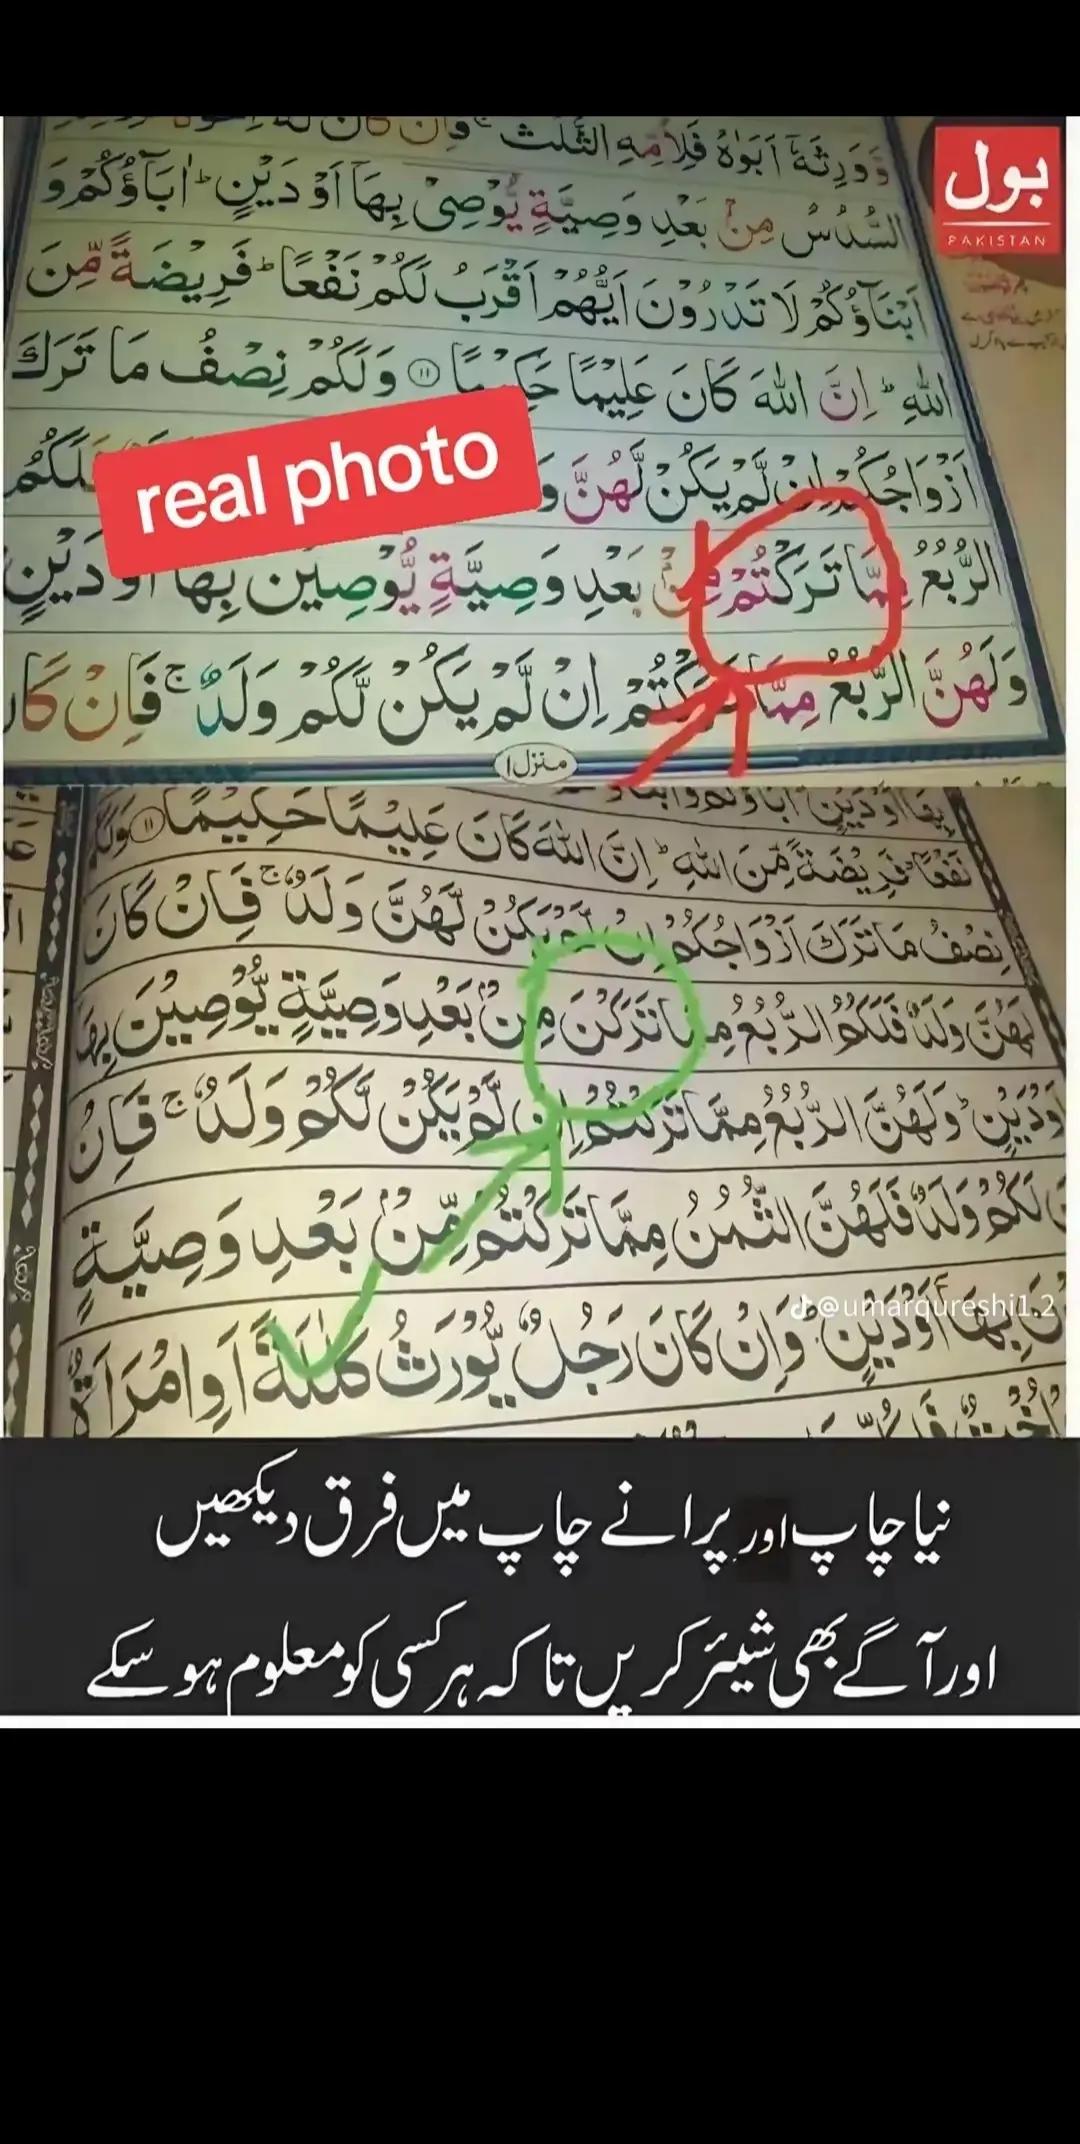 بول
PAKISTAN
وَوَرِثَهٗۤ اَبَوٰهُ فَلِاُمِّهِ الثُّلُثُ ۚ فَاِنْ كَانَ لَهٗۤ
السُّدُسُ مِنْۢ بَعْدِ وَصِیَّةٍ یُّوْصِیْ بِهَاۤ اَوْ دَیْنٍ ؕ اٰبَآؤُكُمْ وَ
اَبْنَآؤُكُمْ لَا تَدْرُوْنَ اَیُّهُمْ اَقْرَبُ لَكُمْ نَفْعًا ؕ فَرِیْضَةً مِّنَ
اللّٰهِ ؕ اِنَّ اللّٰهَ كَانَ عَلِیْمًا حَكِیْمًا ۝۱۱ وَلَكُمْ نِصْفُ مَا تَرَكَ
اَزْوَاجُكُمْ اِنْ لَّمْ یَكُنْ لَّهُنَّ فَلَكُمُ
real photo
الرُّبُعُ مِمَّا تَرَكْتُمْ مِنْۢ بَعْدِ وَصِیَّةٍ یُّوْصِیْنَ بِهَاۤ اَوْ دَیْنٍ
وَلَهُنَّ الرُّبُعُ مِمَّا تَرَكْتُمْ اِنْ لَّمْ یَكُنْ لَّكُمْ وَلَدٌ ۚ فَاِنْ كَانَ
منزل ۱
بِهَاۤ اَوْ دَیْنٍ اٰبَآؤُكُمْ وَاَبْنَآ
نَفْعًا ؕ فَرِیْضَةً مِّنَ اللّٰهِ ؕ اِنَّ اللّٰهَ كَانَ عَلِیْمًا حَكِیْمًا ۝۱۱ وَلَكُمْ
نِصْفُ مَا تَرَكَ اَزْوَاجُكُمْ اِنْ لَّمْ یَكُنْ لَّهُنَّ وَلَدٌ ۚ فَاِنْ كَانَ
لَهُنَّ وَلَدٌ فَلَكُمُ الرُّبُعُ مِمَّا تَرَكْنَ مِنْۢ بَعْدِ وَصِیَّةٍ یُّوْصِیْنَ بِهَاۤ
اَوْ دَیْنٍ ؕ وَلَهُنَّ الرُّبُعُ مِمَّا تَرَكْتُمْ اِنْ لَّمْ یَكُنْ لَّكُمْ وَلَدٌ ۚ فَاِنْ
كَانَ لَكُمْ وَلَدٌ فَلَهُنَّ الثُّمُنُ مِمَّا تَرَكْتُمْ مِّنْۢ بَعْدِ وَصِیَّةٍ
بِهَاۤ اَوْ دَیْنٍ ؕ وَاِنْ كَانَ رَجُلٌ یُّوْرَثُ كَلٰلَةً اَوِ امْرَاَةٌ
@umarqureshi1.2
نیا چاپ اور پرانے چاپ میں فرق دیکھیں
اور آگے بھی شیئر کریں تا کہ ہر کسی کو معلوم ہو سکے